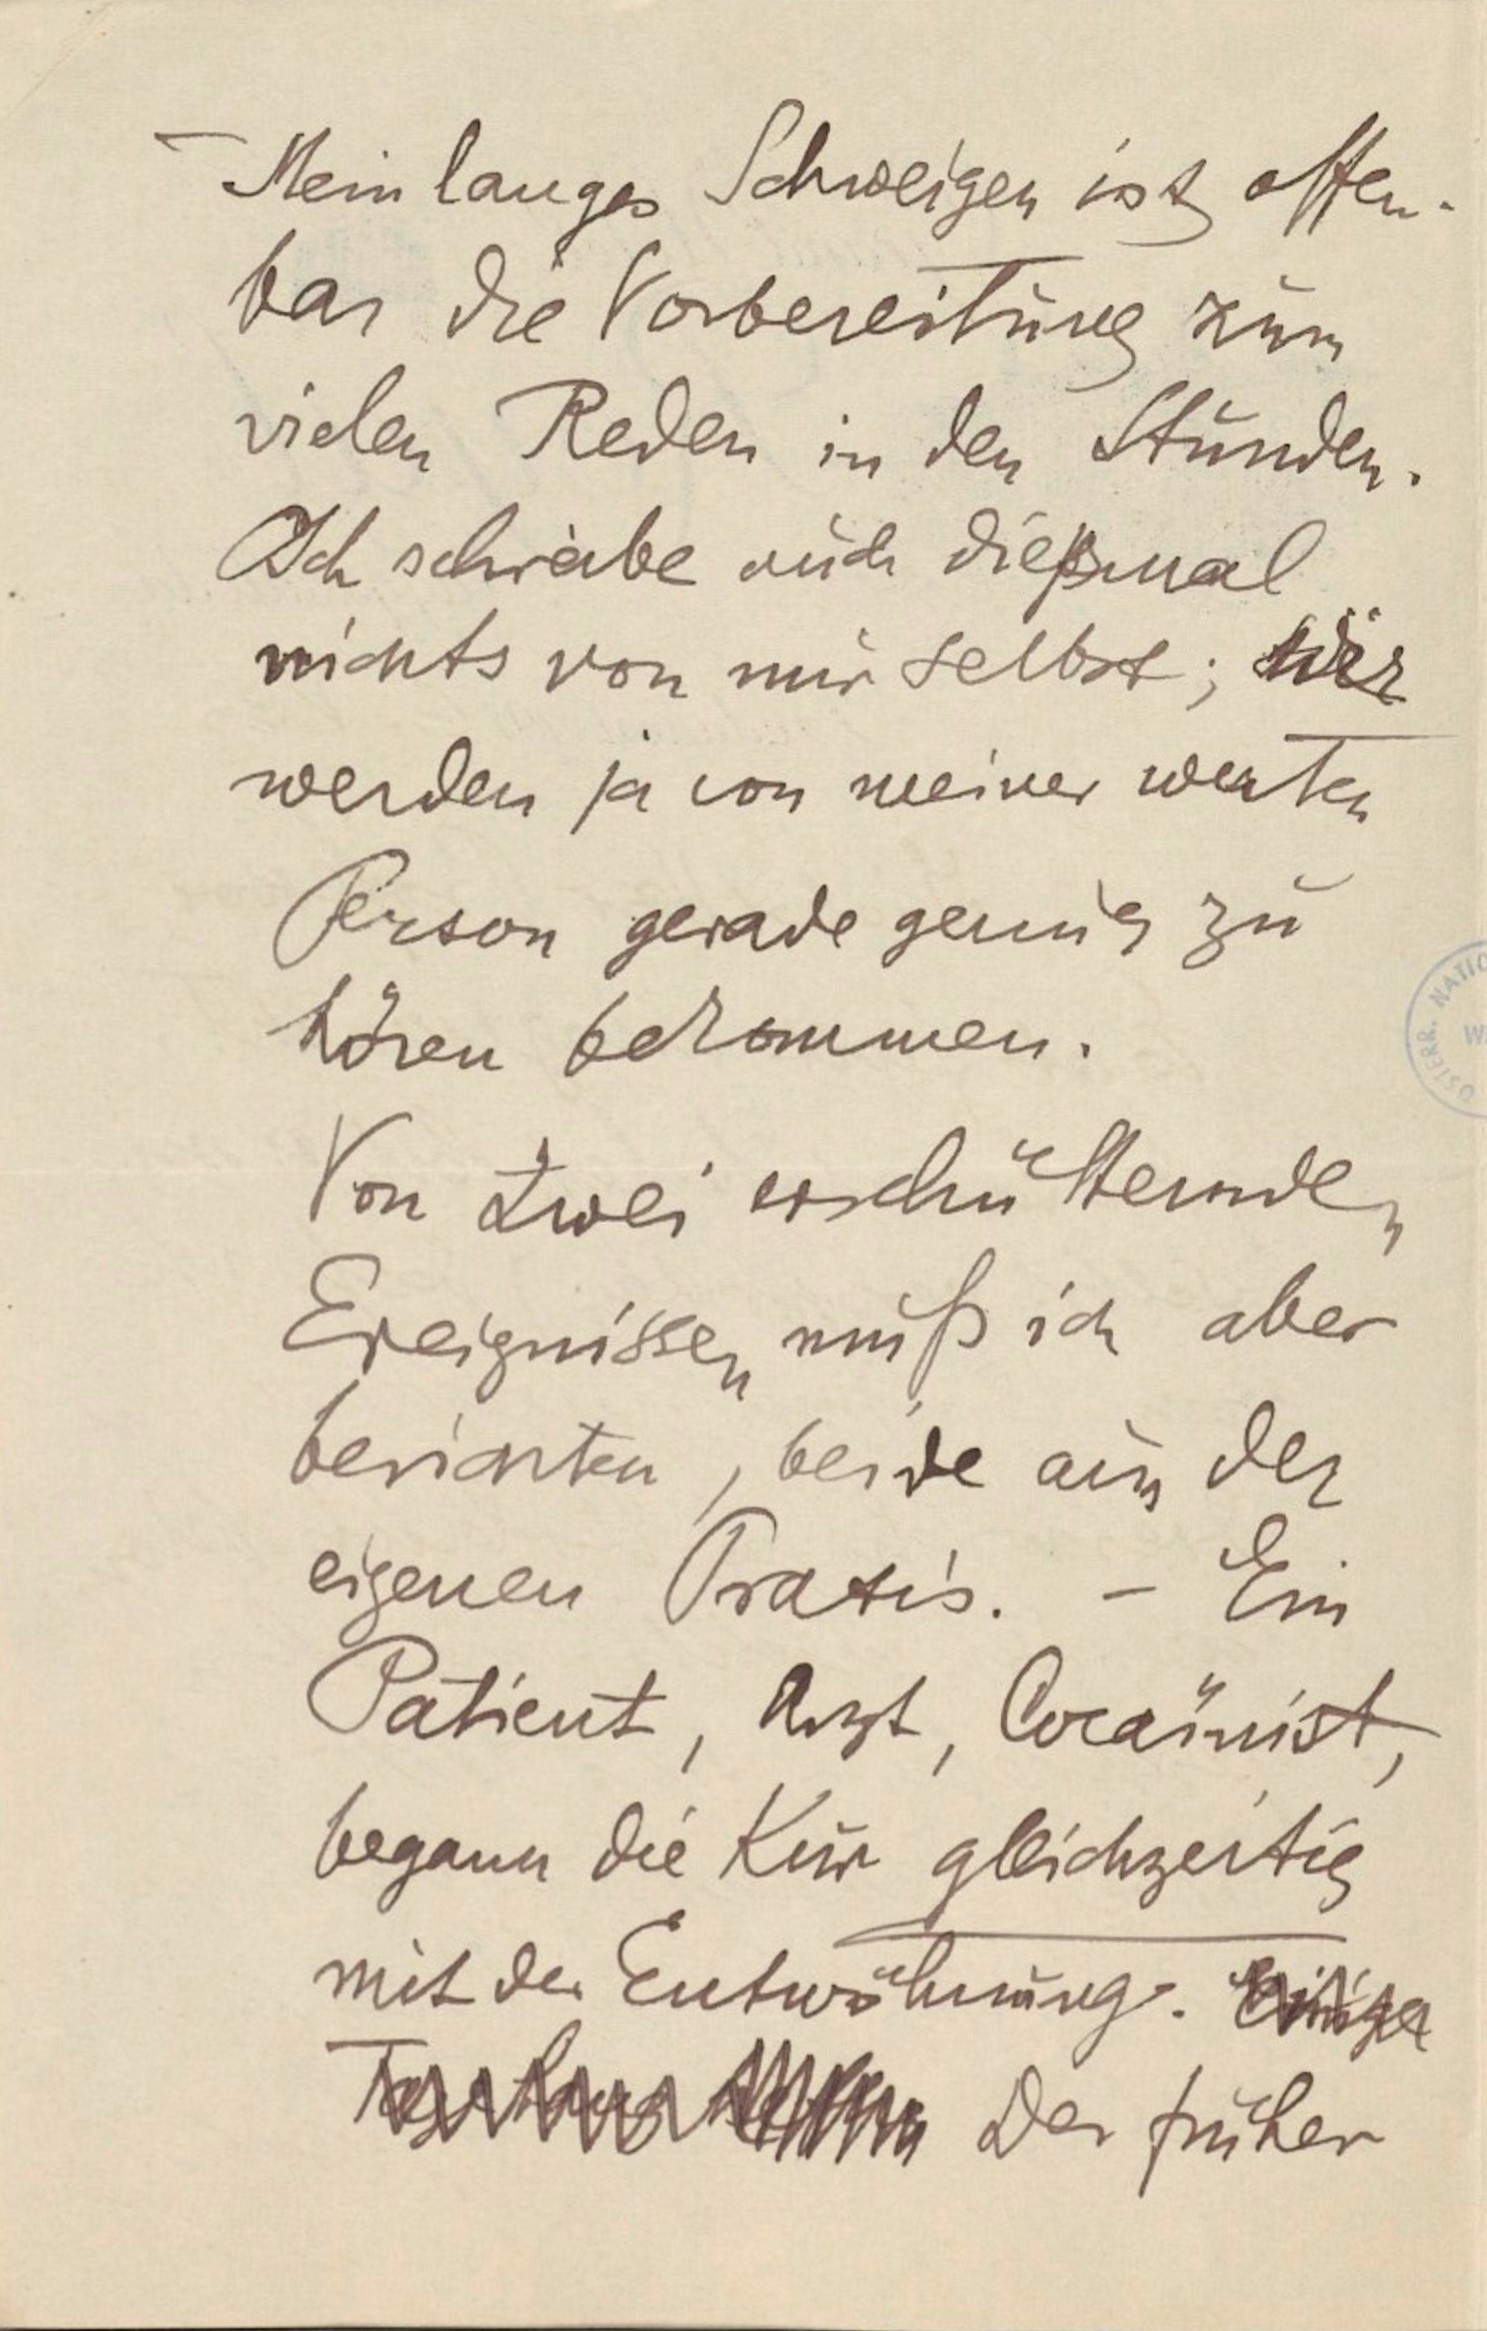 Mein langes Schweigen ist offen-
bar die Vorbereitung zum
vielen Reden in den Stunden.
Ich schreibe auch dießmal
nichts von mir selbst; wir
werden ja von meiner werten
Person gerade genug zu
hören bekommen.
Von zwei erschütternden
Ereignissen muß ich aber
berichten, beide aus der
eigenen Praxis. – Ein
Patient, Arzt, Cocaïnist,
begann die Kur gleichzeitig
mit der Entwöhnung. Einige
Der früher
ÖSTERR. NATIO
W